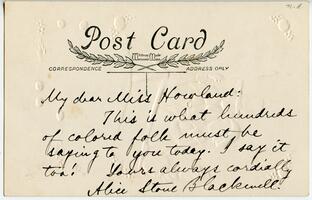 Post Card
CORRESPONDENCE ADDRESS ONLY
My dear Miss Howland:
This is what hundreds
of colored folk must be
saying to you today. I say it
too! Yours always cordially
Alice Stone Blackwell